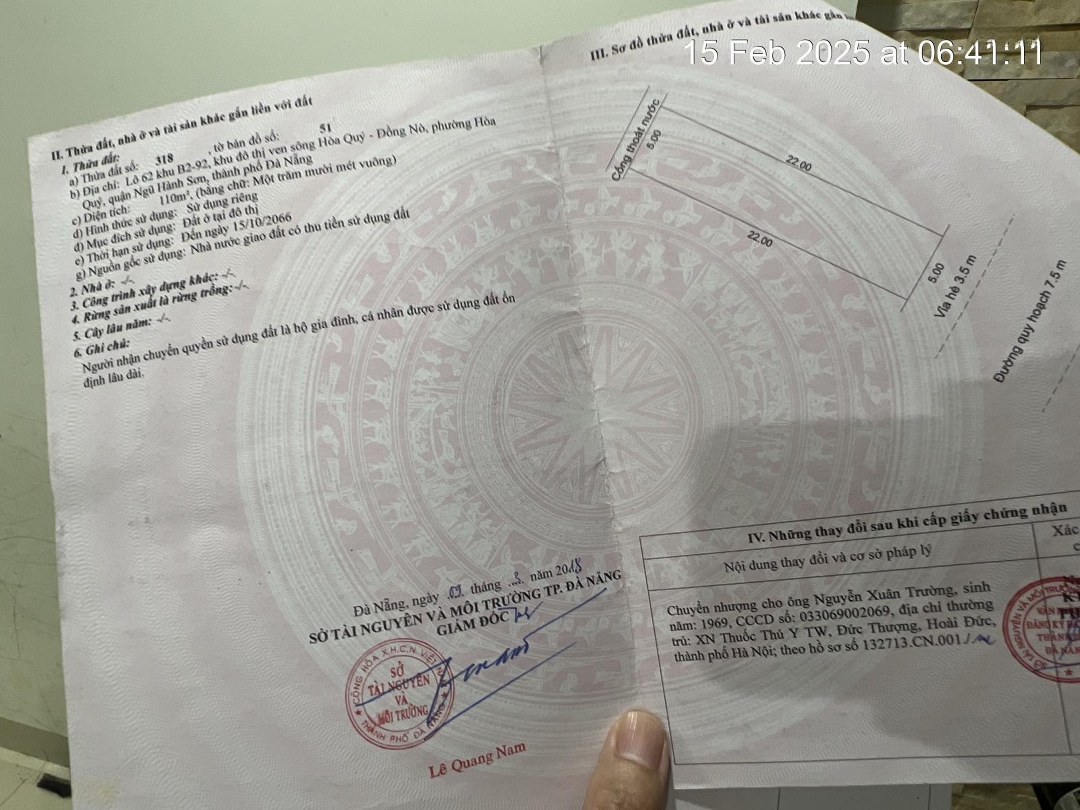 15 Feb 2025 at 06:41:11
II. Thửa đất, nhà ở và tài sản khác gắn liền với đất
1. Thửa đất:
a) Thửa đất số: 318 , tờ bản đồ số: 51
b) Địa chỉ: Lô 62 khu B2-92, khu đô thị ven sông Hòa Quý - Đồng Nò, phường Hòa
Quý, quận Ngũ Hành Sơn, thành phố Đà Nẵng
c) Diện tích: 110m², (bằng chữ: Một trăm mười mét vuông)
d) Hình thức sử dụng: Sử dụng riêng
đ) Mục đích sử dụng: Đất ở tại đô thị
e) Thời hạn sử dụng: Đến ngày 15/10/2066
g) Nguồn gốc sử dụng: Nhà nước giao đất có thu tiền sử dụng đất
2. Nhà ở: -/-
3. Công trình xây dựng khác: -/-
4. Rừng sản xuất là rừng trồng: -/-
5. Cây lâu năm: -/-
6. Ghi chú:
Người nhận chuyển quyền sử dụng đất là hộ gia đình, cá nhân được sử dụng đất ổn
định lâu dài.
Đà Nẵng, ngày 09 tháng 3 năm 2018
SỞ TÀI NGUYÊN VÀ MÔI TRƯỜNG TP. ĐÀ NẴNG
GIÁM ĐỐC
CỘNG HÒA X.H.C.N VIỆT NAM
SỞ
TÀI NGUYÊN
VÀ
MÔI TRƯỜNG
THÀNH PHỐ ĐÀ NẴNG
Lê Quang Nam
III. Sơ đồ thửa đất, nhà ở và tài sản khác gắn
Cống thoát nước
5.00
22.00
22.00
5.00
Vỉa hè 3.5 m
Đường quy hoạch 7.5 m
IV. Những thay đổi sau khi cấp giấy chứng nhận
Nội dung thay đổi và cơ sở pháp lý
Xác
Chuyển nhượng cho ông Nguyễn Xuân Trường, sinh
năm: 1969, CCCD số: 033069002069, địa chỉ thường
trú: XN Thuốc Thú Y TW, Đức Thượng, Hoài Đức,
thành phố Hà Nội; theo hồ sơ số 132713.CN.001./.